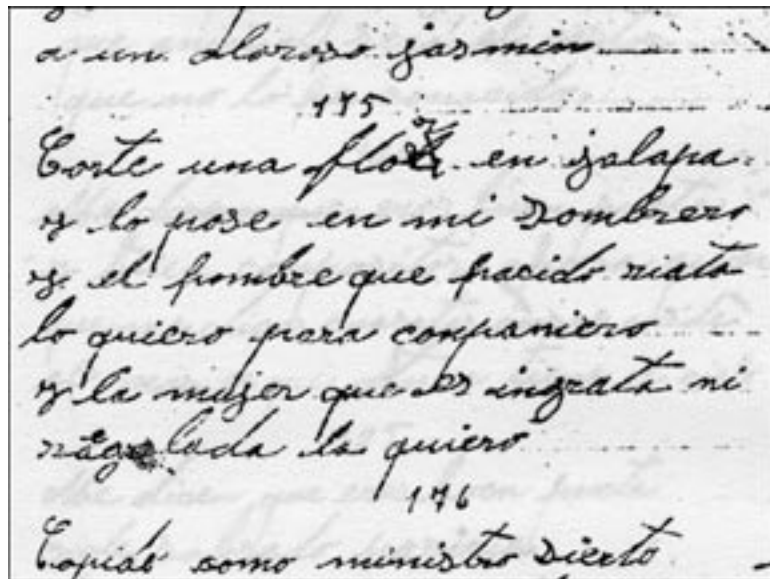 a un oloroso jasmin
175
Corte una flor en jalapa
y lo pose en mi sombrero
y el hombre que hacido riata
lo quiero para conpaniero
y la mujer que es ingrata ni
regalada la quiero
176
como ministro sierto